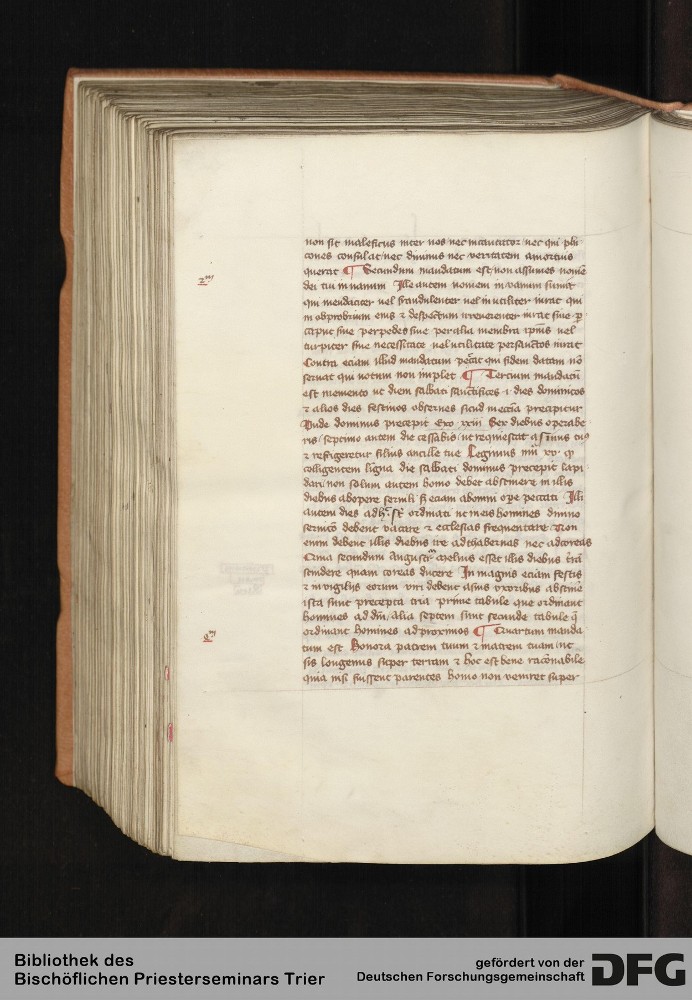 non sit maleficus inter vos nec incantator nec qui phi
tones consulat nec diuinus nec veritatem amortuis
querat ¶ Secundum mandatum est non assumes nomē
dei tui in vanum Ille autem nomen in vanum sumit
qui mendaciter uel fraudulenter uel inutiliter iurat qui
in obprobrium eius ⁊ despectum irreuerenter iurat siue p
caput siue per pedes siue per alia membra ipsius uel
turpiter siue necessitate uel utilitate per sanctos iurat
Contra eciam illud mandatum peccat qui fidem datam nō
seruat qui uotum non implet ¶ Tercium mandatū
est memento ut diem sabbati sanctifices .i. dies dominicos
⁊ alios dies festiuos obserues sicud precipitur
Vnde dominus precepit Exo xxiii Sex diebus operabe
ris septimo autem die cessabis ut requiescat asinus tuus
⁊ refrigeretur filius ancille tue Legimus xv ꝙ
colligentem ligna die sabbati dominus precepit lapi
dari non solum autem homo debet abstinere in illis
diebus ab opere seruili s; eciam ab omni ope peccati Illi
autem dies ad ordinati ut in eis homines diuino
seruicio debent vacare ⁊ ecclesias frequentare Non
enim debent illis diebus ire ad thabernas nec ad coreas
Quia secundum augustinum melius esset illis diebus
scindere quam coreas ducere In magnis eciam festis
⁊ in vigiliis eorum viri debent a suis vxoribus abstine
ista sunt precepta tria prime tabule que ordinant
homines ad dm̄ / alia septem sunt secunde tabule q̄
ordinant homines ad proximos ¶ Quartum manda
tum est Honora patrem tuum ⁊ matrem tuam ut
sis longeuus super terram ⁊ hoc est bene racōnabile
quia nisi fuissent parentes homo non veniret super
2m
Bibliothek des
Bischöflichen Priesterseminars Trier
gefördert von der
Deutschen Forschungsgemeinschaft
DFG